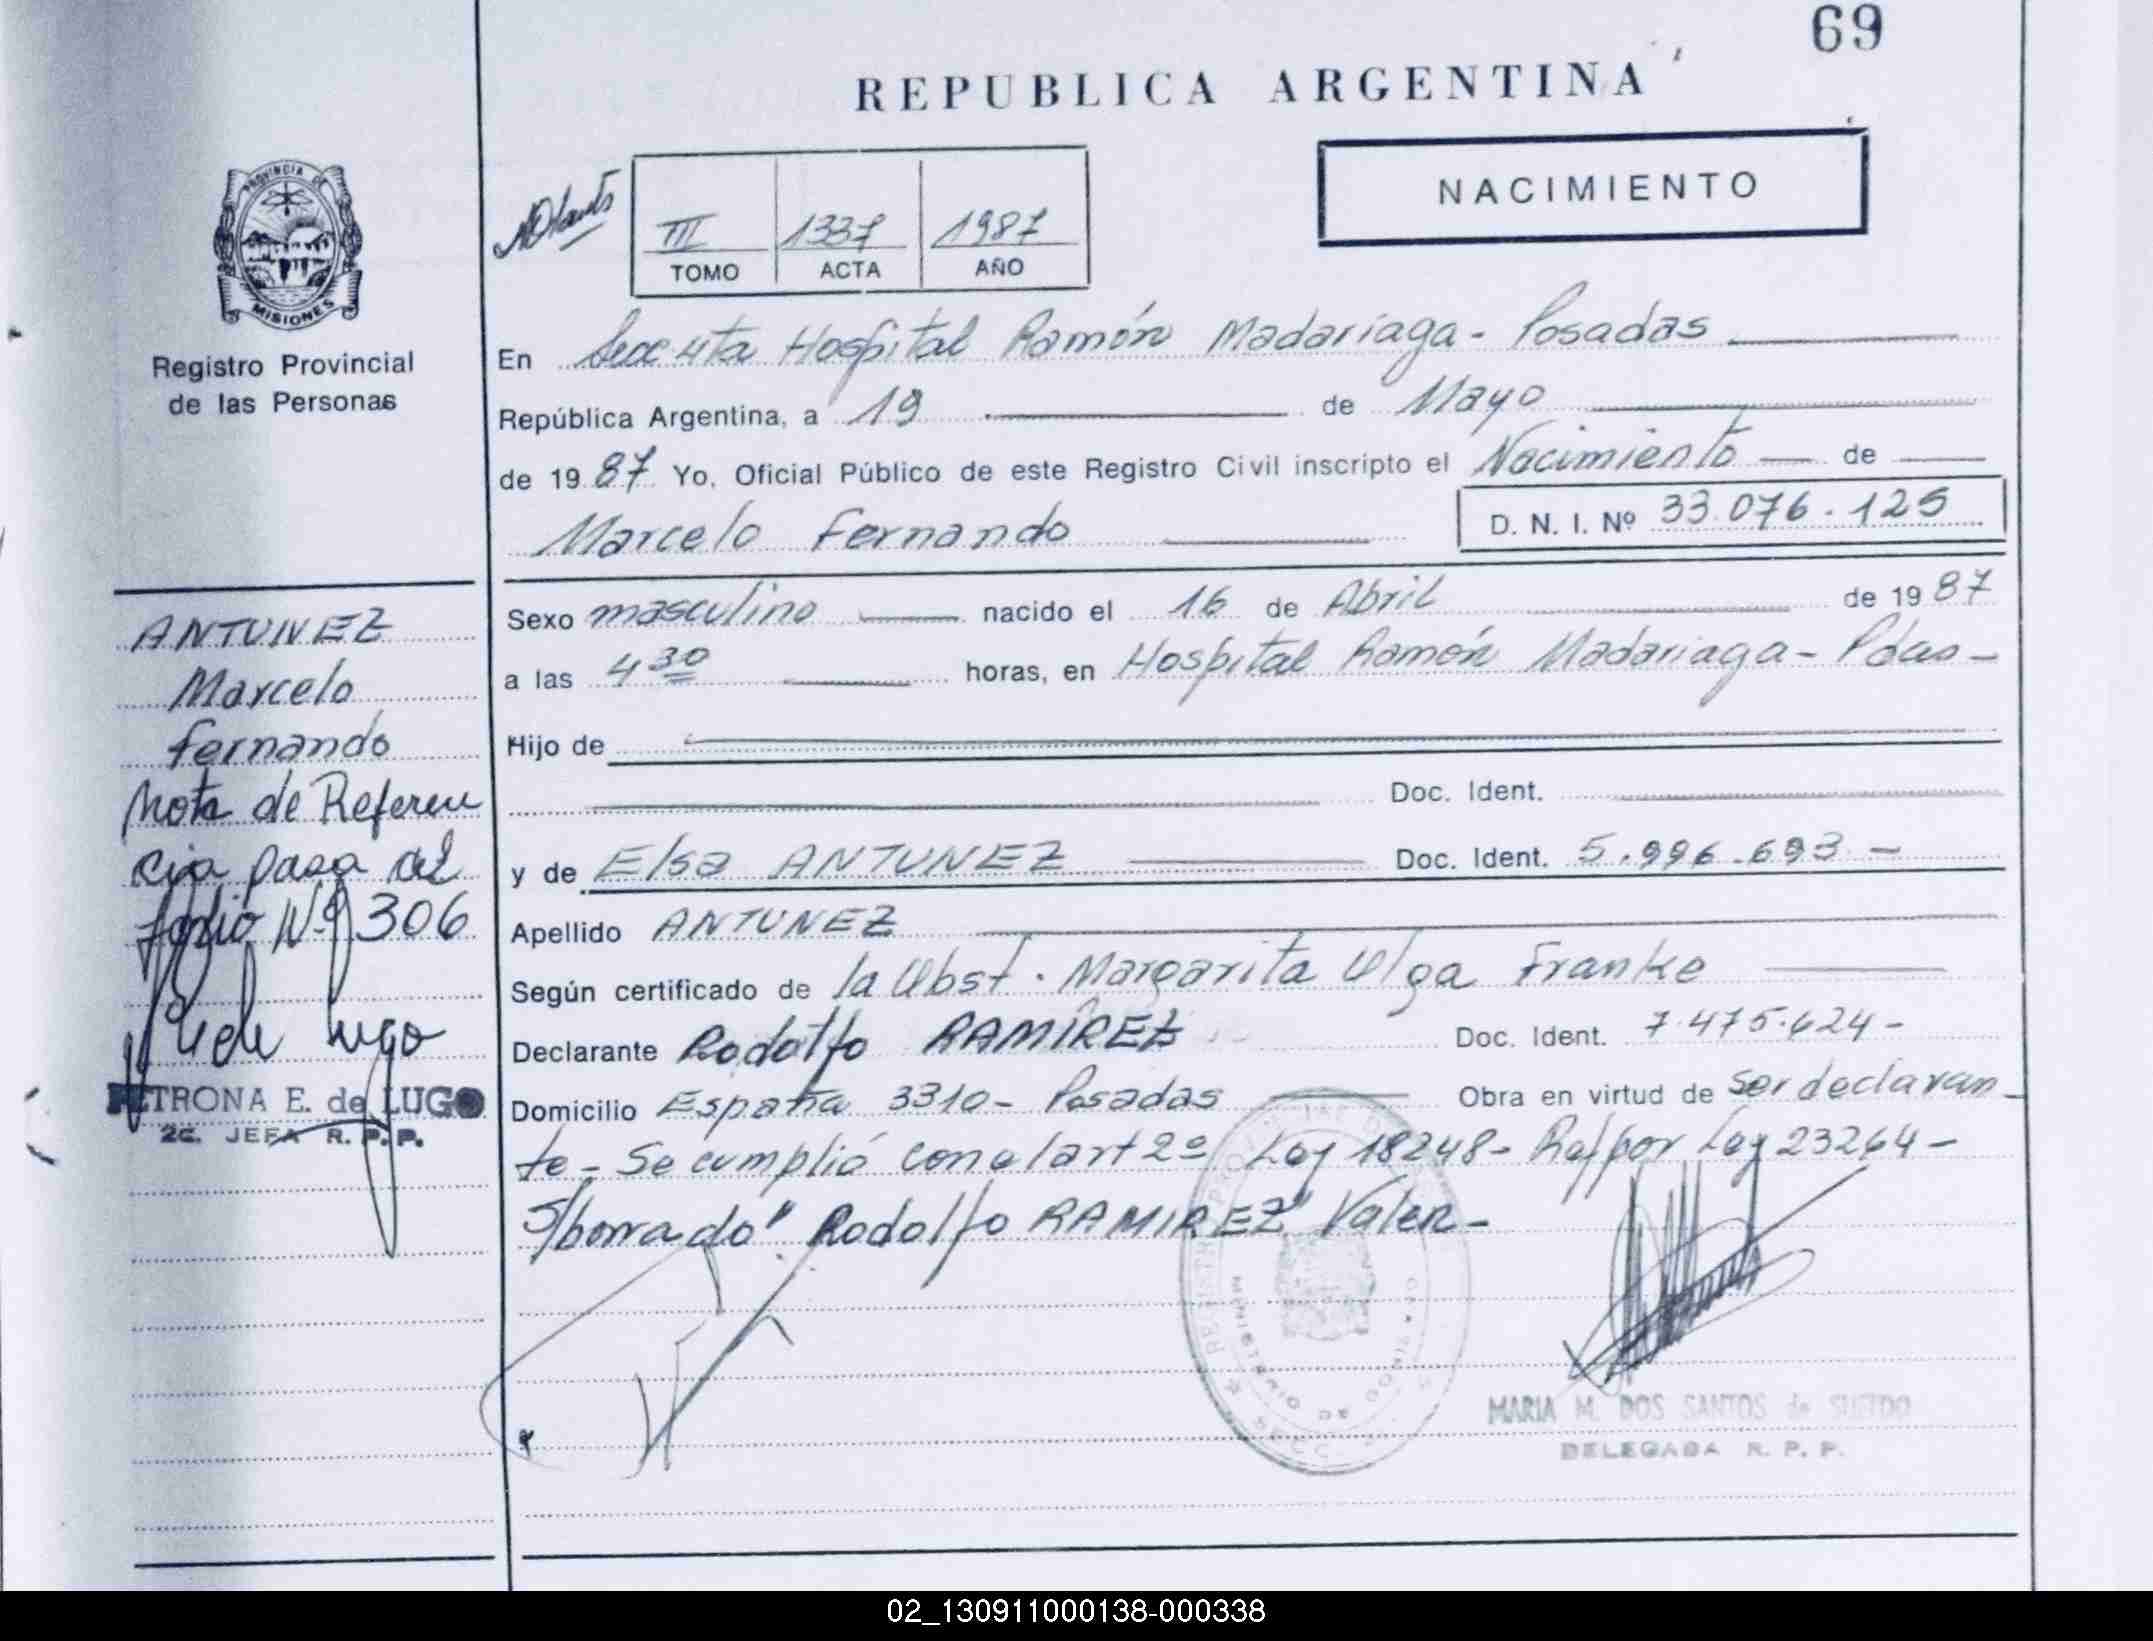 69
REPUBLICA ARGENTINA
NACIMIENTO
III 1337 1987
TOMO ACTA AÑO
PROVINCIA DE
MISIONES
Registro Provincial
de las Personas
En Hospital Ramón Madariaga - Posadas
República Argentina, a 19 de Mayo
de 1987 Yo, Oficial Público de este Registro Civil inscripto el Nacimiento de
Marcelo Fernando D. N. I. Nº 33.076.125
Sexo masculino nacido el 16 de Abril de 1987
a las 4 30 horas, en Hospital Ramón Madariaga - Pdas -
Hijo de
Doc. Ident.
y de Elsa ANTUNEZ Doc. Ident. 5.996.693 -
Apellido ANTUNEZ
Según certificado de la Obst. Margarita Olga Franke
Declarante Rodolfo RAMIREZ Doc. Ident. 7.475.624 -
Domicilio España 3310 - Posadas Obra en virtud de ser declaran
te - Se cumplió con el art 2º Ley 18248 - Ref/por Ley 23264 -
S/borrado " Rodolfo RAMIREZ" Valen -
ANTUNEZ
Marcelo
Fernando
Nota de Referen
cia pasa al
folio Nº 306
PETRONA E. de LUGO
2a. JEFA R. P. P.
MARIA M. DOS SANTOS de
DELEGADA R. P. P.
02_130911000138-000338